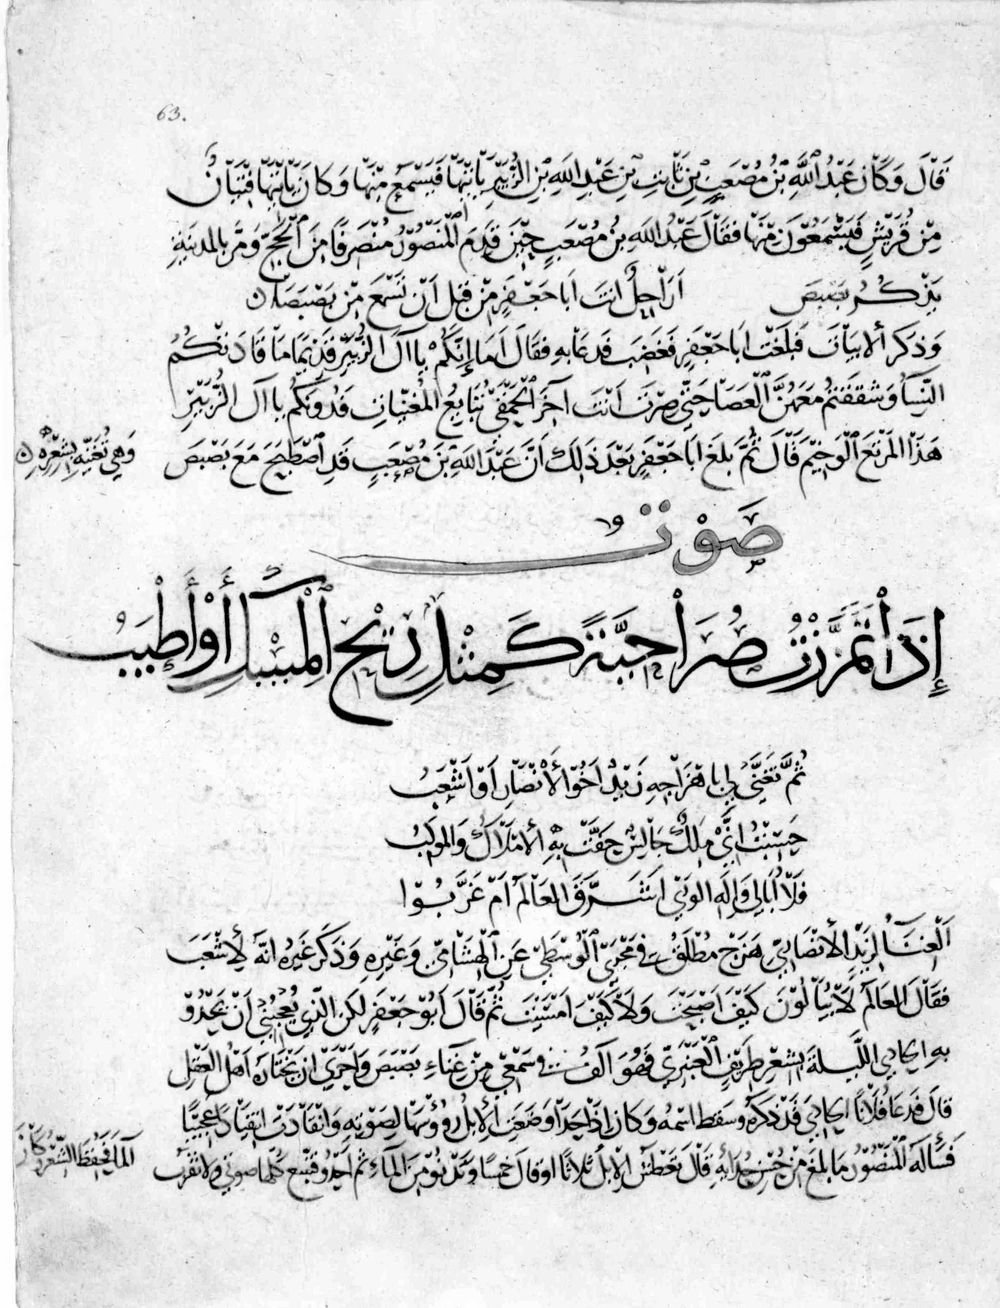 63.
قَالَ وَكَانَ عَبْدُ اللَّهِ بْنُ مُصْعَبِ بْنِ ثَابِتِ بْنِ عَبْدِ اللَّهِ بْنِ الزُّبَيْرِ يَأْتِيهَا فَيَسْمَعُ مِنْهَا وَكَانَ يَأْتِيهَا فِتْيَانٌ
مِنْ قُرَيْشٍ فَيَسْمَعُونَ مِنْهَا فَقَالَ عَبْدُ اللَّهِ بْنُ مُصْعَبٍ حِينَ قَدِمَ الْمَنْصُورُ مُنْصَرِفًا مِنَ الْحَجِّ وَمَرَّ بِالمَدِينَةِ
يَذْكُرُ بَصْبَصَ أَرَاحِلٌ أنتَ أبَا جَعْفَرٍ مِنْ قَبْلِ أَنْ تَسْمَعَ مِنْ بَصْبَصَا
وَذَكَرَ الأبْيَاتَ فَبَلَغَتْ ابَا جَعْفَرٍ فَغَضِبَ فَدعَا بهِ فَقَالَ اَمَا إِنَّكُمْ يا آلَ الزُّبَيْرِ قَدِيمًا مَا قَادَتْكُمُ
النِّسَآءُ وَشَقَقْتُمْ مَعَهُنَّ الْعَصَا حَتَّى صِرْتَ اَنْتَ آخرَ الْحَمْقَى تُبَايِعُ الْمُغَنِّيَاتِ فَدُونَكُم يا آلَ الزُّبَيْرِ
هَذَا المَرْتَعَ الْوَخِيْمَ قَالَ ثُمَّ بلَغَ ابَا جَعْفَرٍ بَعْدَ ذَلِكَ اَنَّ عَبْدَ اللَّهِ بْنَ مُصْعَبٍ قَدِ اصْطَبَحَ مَعَ بَصْبَصَ
وَهِيَ تُغَنِّيهِ بِشِعْرِهِ
صَوْت
إِذَا تَمَزَّزْتُ صُرَاحِيَّةً كَمِثْلِ رِيْحِ الْمِسْكِ أَوْ أَطْيَبُ
ثُمَّ تَغَنَّى لِي بِاهْزَاجِهِ زَيْدٌ اَخُو الأَنْصَارِ اَوْ اَشْعَبُ
حَسِبْتُ انِّي مَلِكٌ جَالِسٌ حَفَّتْ بِهِ الأمْلَاكُ وَالمَوْكِبُ
فَلَا أُبَالِي وَإِلَهِ الوَرَى أشَرَّقَ العَالَمُ اَمْ غَرَّبُوا
الْغِنَآءُ لِزَيْدٍ الأنْصَارِيِّ هَزَجٌ مُطْلَقٌ في مَجْرَى الْوُسْطَى عَنِ الْهِشَامِيِّ وَغَيْرِهِ وَذَكَرَ غَيْرُهُ انَّهُ لِأشْعَبَ
فَقَالَ العَالَمُ لَا يُبَالُونَ كَيْفَ اَصْبَحْتَ وَلَا كَيْفَ امْسَيْتَ ثُمَّ قَالَ أَبُو جَعْفَرٍ لكن الَّذِي يُعْجِبُنِي أَنْ يَحْدُوَ
بِهِ الحَادِي اللَّيْلَةَ بِشِعْرِ طَرِيفٍ الْعَنْبَرِيِّ فَهُوَ آلَفُ في سَمْعِي مِنْ غِنَاءِ بَصْبَصَ وَاَحْرَى ان يَخْتَارَهُ اَهْلُ الْعَقْلِ
قَالَ فَدَعَا فُلَانًا الحَادِيَ قَدْ ذَكَرَهُ وسَقَطَ اسْمُهُ وَكَانَ إذَا حَدَا وَضَعَتِ الْإبِلُ رُؤُسَهَا لِصَوْتِهِ وَانْقَادَتْ انْقِيَادًا عَجِيبًا
فَسَأَلَهُ الْمَنْصُورُ مَا بَلَغَ مِنْ حُسْنِ حُدَائِهِ قَالَ تُعَطَّشُ الْإبِلُ ثَلَاثًا اوقَالَ خَمْسًا وَتَدْنُو مِنَ الْمَاءِ ثم اَحْدُو فتتبع كُلُّهَا صَوْتِي ولا تَقْرَبُ
الْمَاءَ فَحَفِظَ الشِّعْرَ وَكَانَ